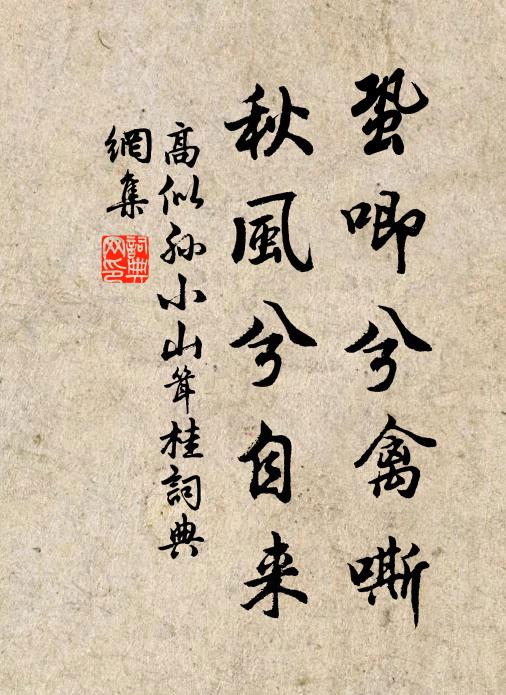 蛩唧兮禽嘶
秋風兮自来
高似孙小山耸桂詞典
網集
詞典
网印